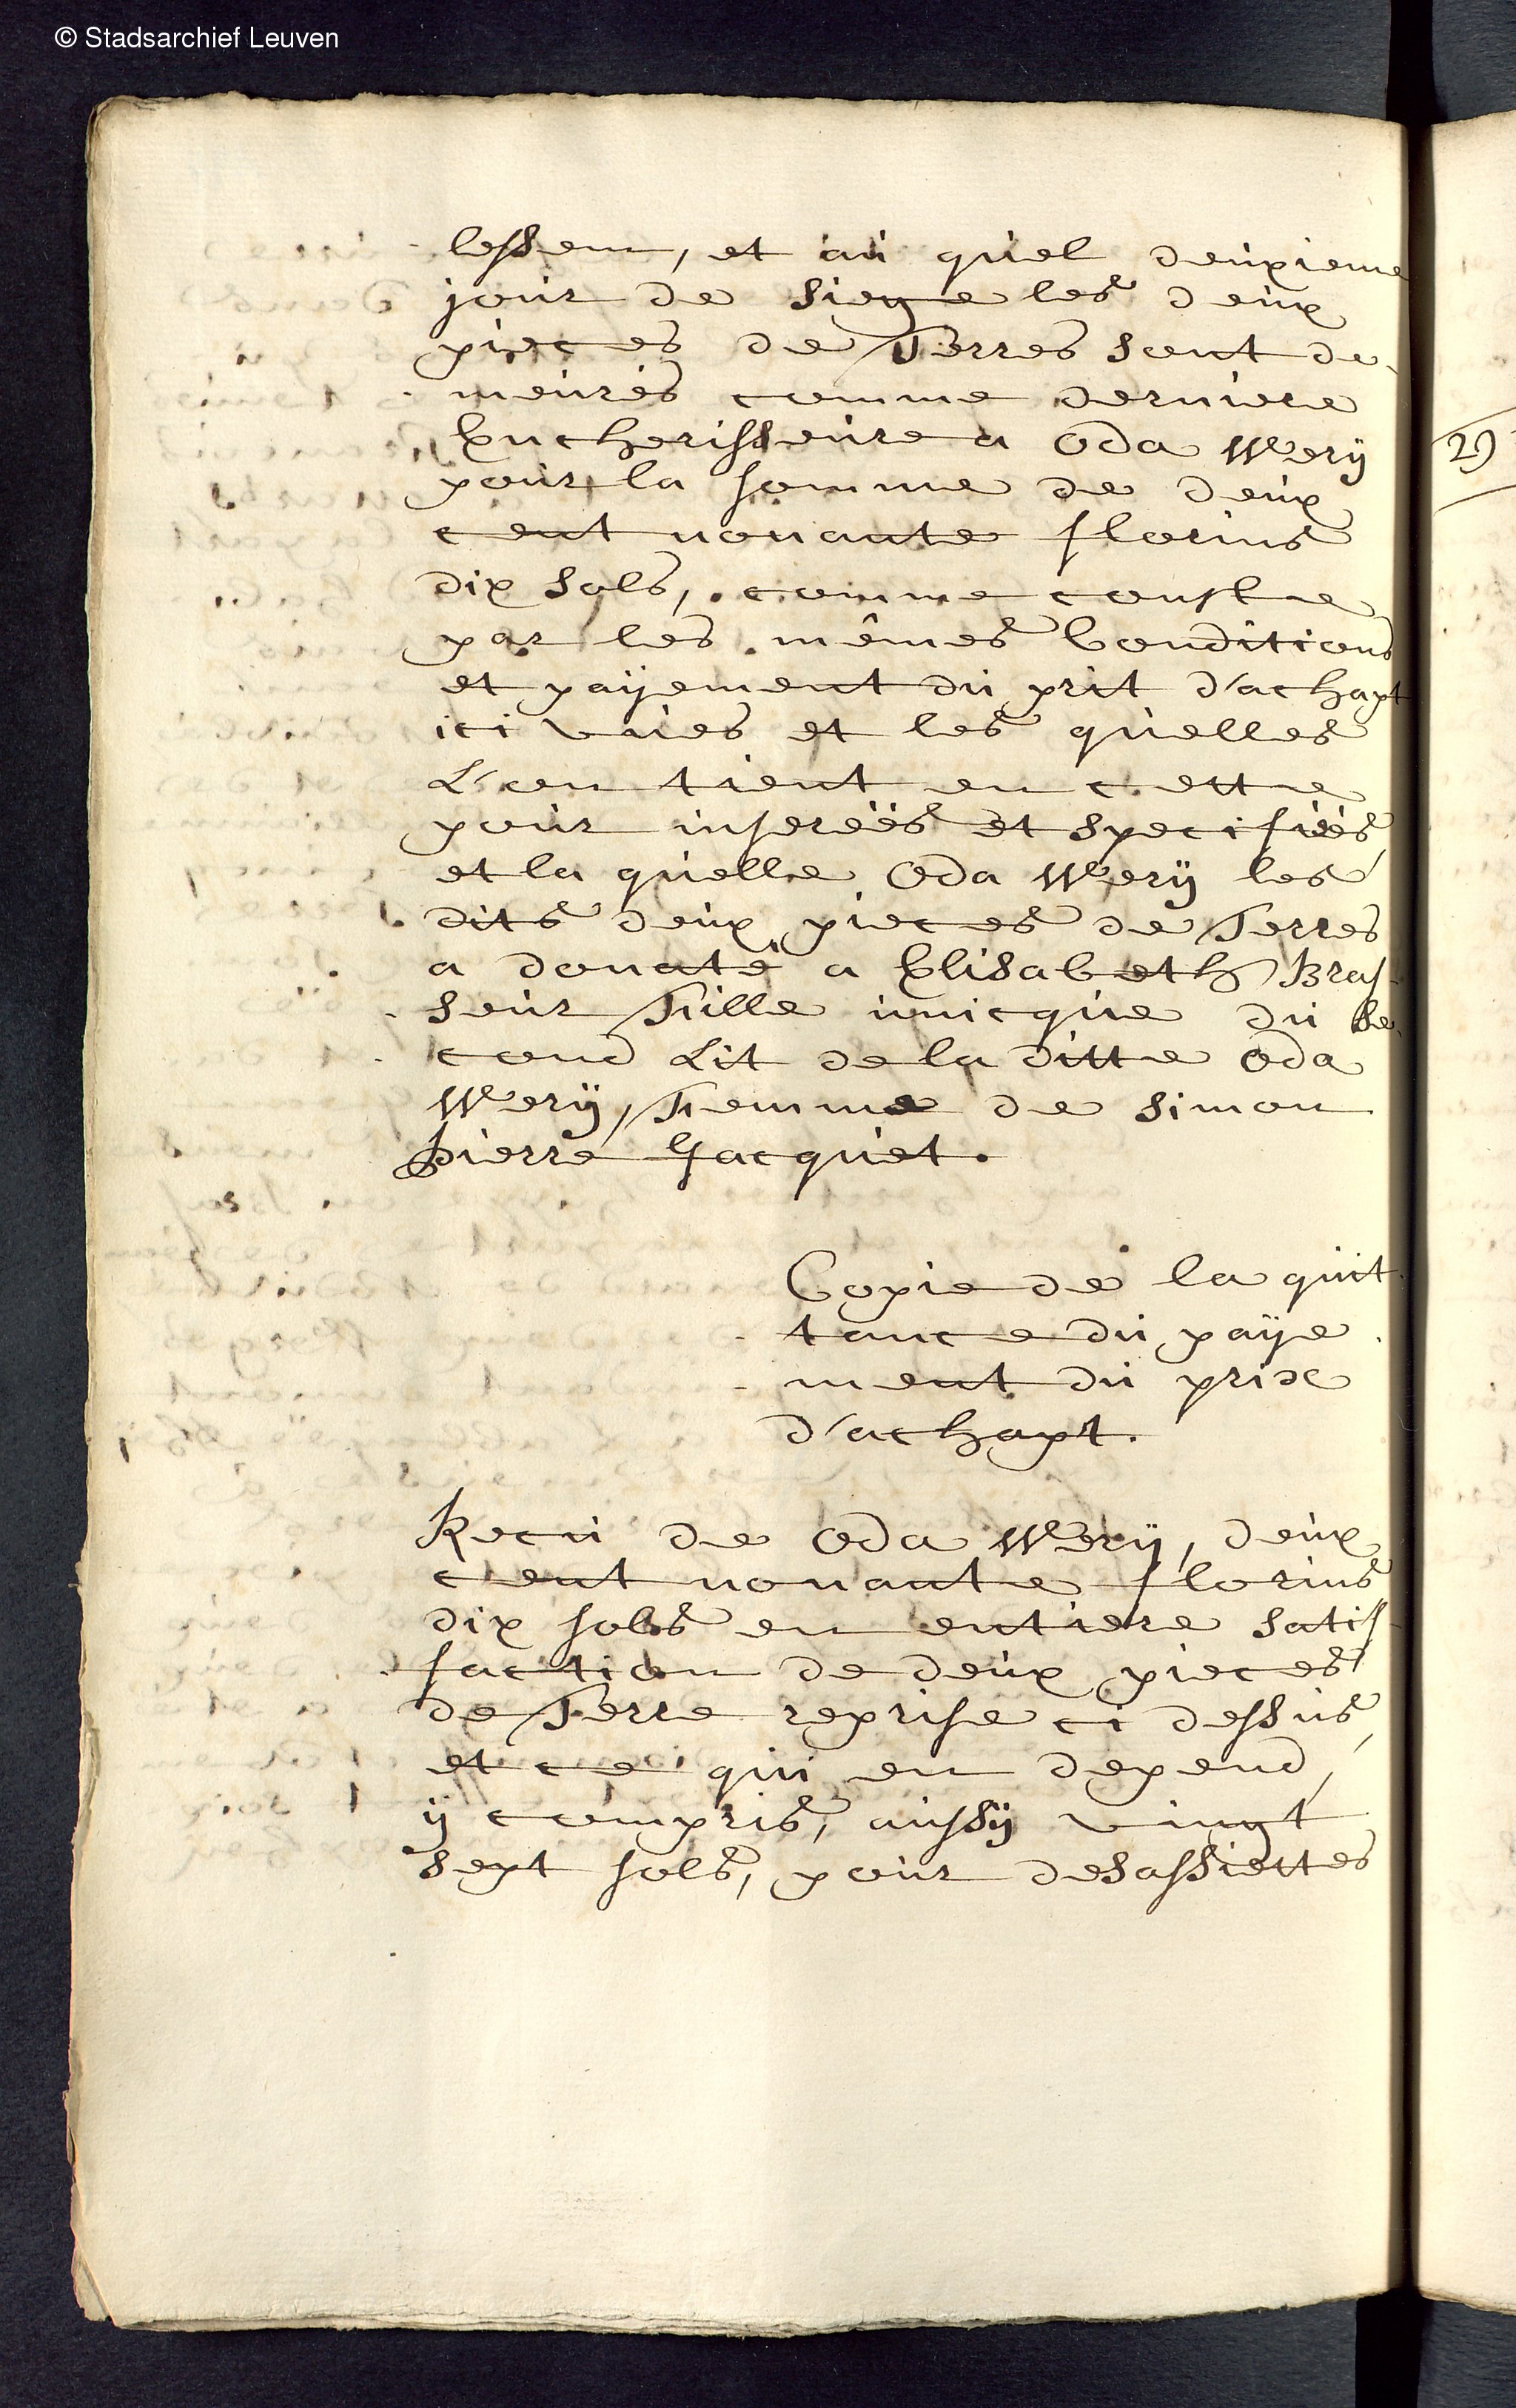 © Stadsarchief Leuven
lessem, et au quel deuxieme
jour de siege les deux
pieces de Terres sont de-
meurés comme derniere
Encherisseure a Oda Werÿ
pour la somme de deux
cent nonante florins
dix sols, comme conste
par les mêmes Conditions
et paÿement du prit d'achapt
ici vues et les quelles
L'on tient en cette
pour inseréés et specifiéés
et la quelle Oda Werÿ les
dits deux pieces de Terres
a donaté a Elisabeth Bras-
seur Fille unicque du se-
cond Lit de la ditte Oda
Werÿ, Femme de Simon
Pierre Jacquet.
Copie de la quit-
tance du paÿe-
ment du prix
d'achapt.
Recu de Oda Werÿ, deux
cent nonante florins
dix sols en entiere satis-
faction de deux pieces
de Terre reprise ci dessus,
et ce qui en depend,
ÿ compris, aussÿ vingt
sept sols, pour des assiettes
2)